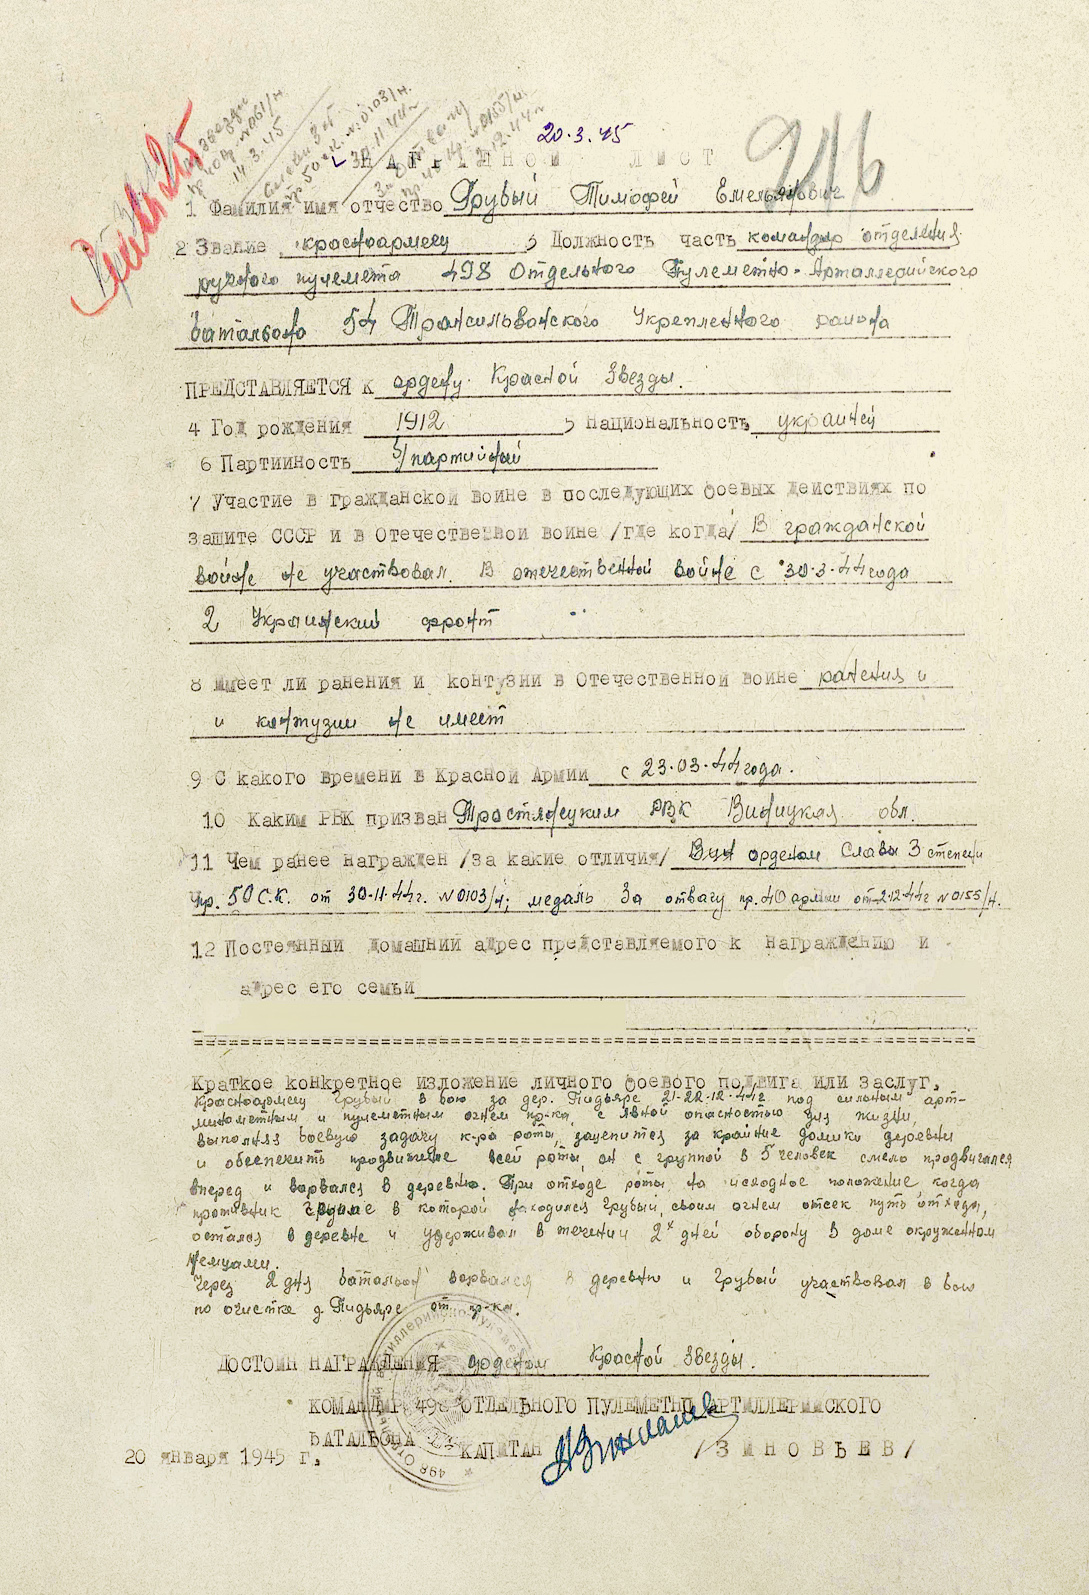 20.3.45
216
НАГРАДНОЙ ЛИСТ
1 Фамилия имя отчество Грубый Тимофей Емельянович
2 Звание красноармеец 3 Должность часть командир отделения
ручного пулемета 498 Отдельного Пулеметно-Арталлерийского
батальона 54 Трансильванского Укрепленного района
ПРЕДСТАВЛЯЕТСЯ К ордену Красной Звезды.
4 Год рождения 1912 5 Национальность украинец
6 Партийность б/партийный
7 Участие в гражданской воине в последующих боевых действиях по
защите СССР и в Отечественной воине /где когда/ В гражданской
войне не участвовал. В отечественной войне с 30.3.44 года
2 Украинский фронт
8 Имеет ли ранения и контузии в Отечественной воине ранения и
и контузии не имеет
9 С какого времени в Красной Армии с 23.03.44 года.
10 Каким РВК призван Тростянецким РВК Виницкая обл.
11 Чем ранее награжден /за какие отличия/ орденом Славы 3 степени
пр. 50 С.К. от 30.11.44 г. N 0103/н; медаль За отвагу пр. 40 армии от 2.12.44 г N 0155/н.
12 Постоянный домашний адрес представляемого к награждению и
адрес его семьи
Краткое конкретное изложение личного боевого подвига или заслуг.
Красноармеец Грубый в бою за дер. Пидьяре 21-22.12.44 г под сильным арт-
минометным и пулеметным огнем пр-ка с явной опасностью для жизни,
выполняя боевую задачу к-ра роты, зацепится за крайние домики деревни
и обеспечить продвижение всей роты, он с группой в 5 человек смело продвигался
вперед и ворвался в деревню. При отходе роты на исходное положение когда
противник группе в которой находился Грубый, своим огнем отсек путь отхода,
остался в деревне и удерживал в течении 2х дней оборону в доме окруженном
немцами.
Через 2 дня батальон ворвался в деревню и Грубый участвовал в бою
по очистке д. Пидьяре от пр-ка.
ДОСТОИН НАГРАЖДЕНИЯ орденом Красной Звезды.
КОМАНДИР 498 ОТДЕЛЬНОГО ПУЛЕМЕТНО АРТИЛЛЕРИЙСКОГО
БАТАЛЬОНА КАПИТАН /ЗИНОВЬЕВ/
20 января 1945 г.